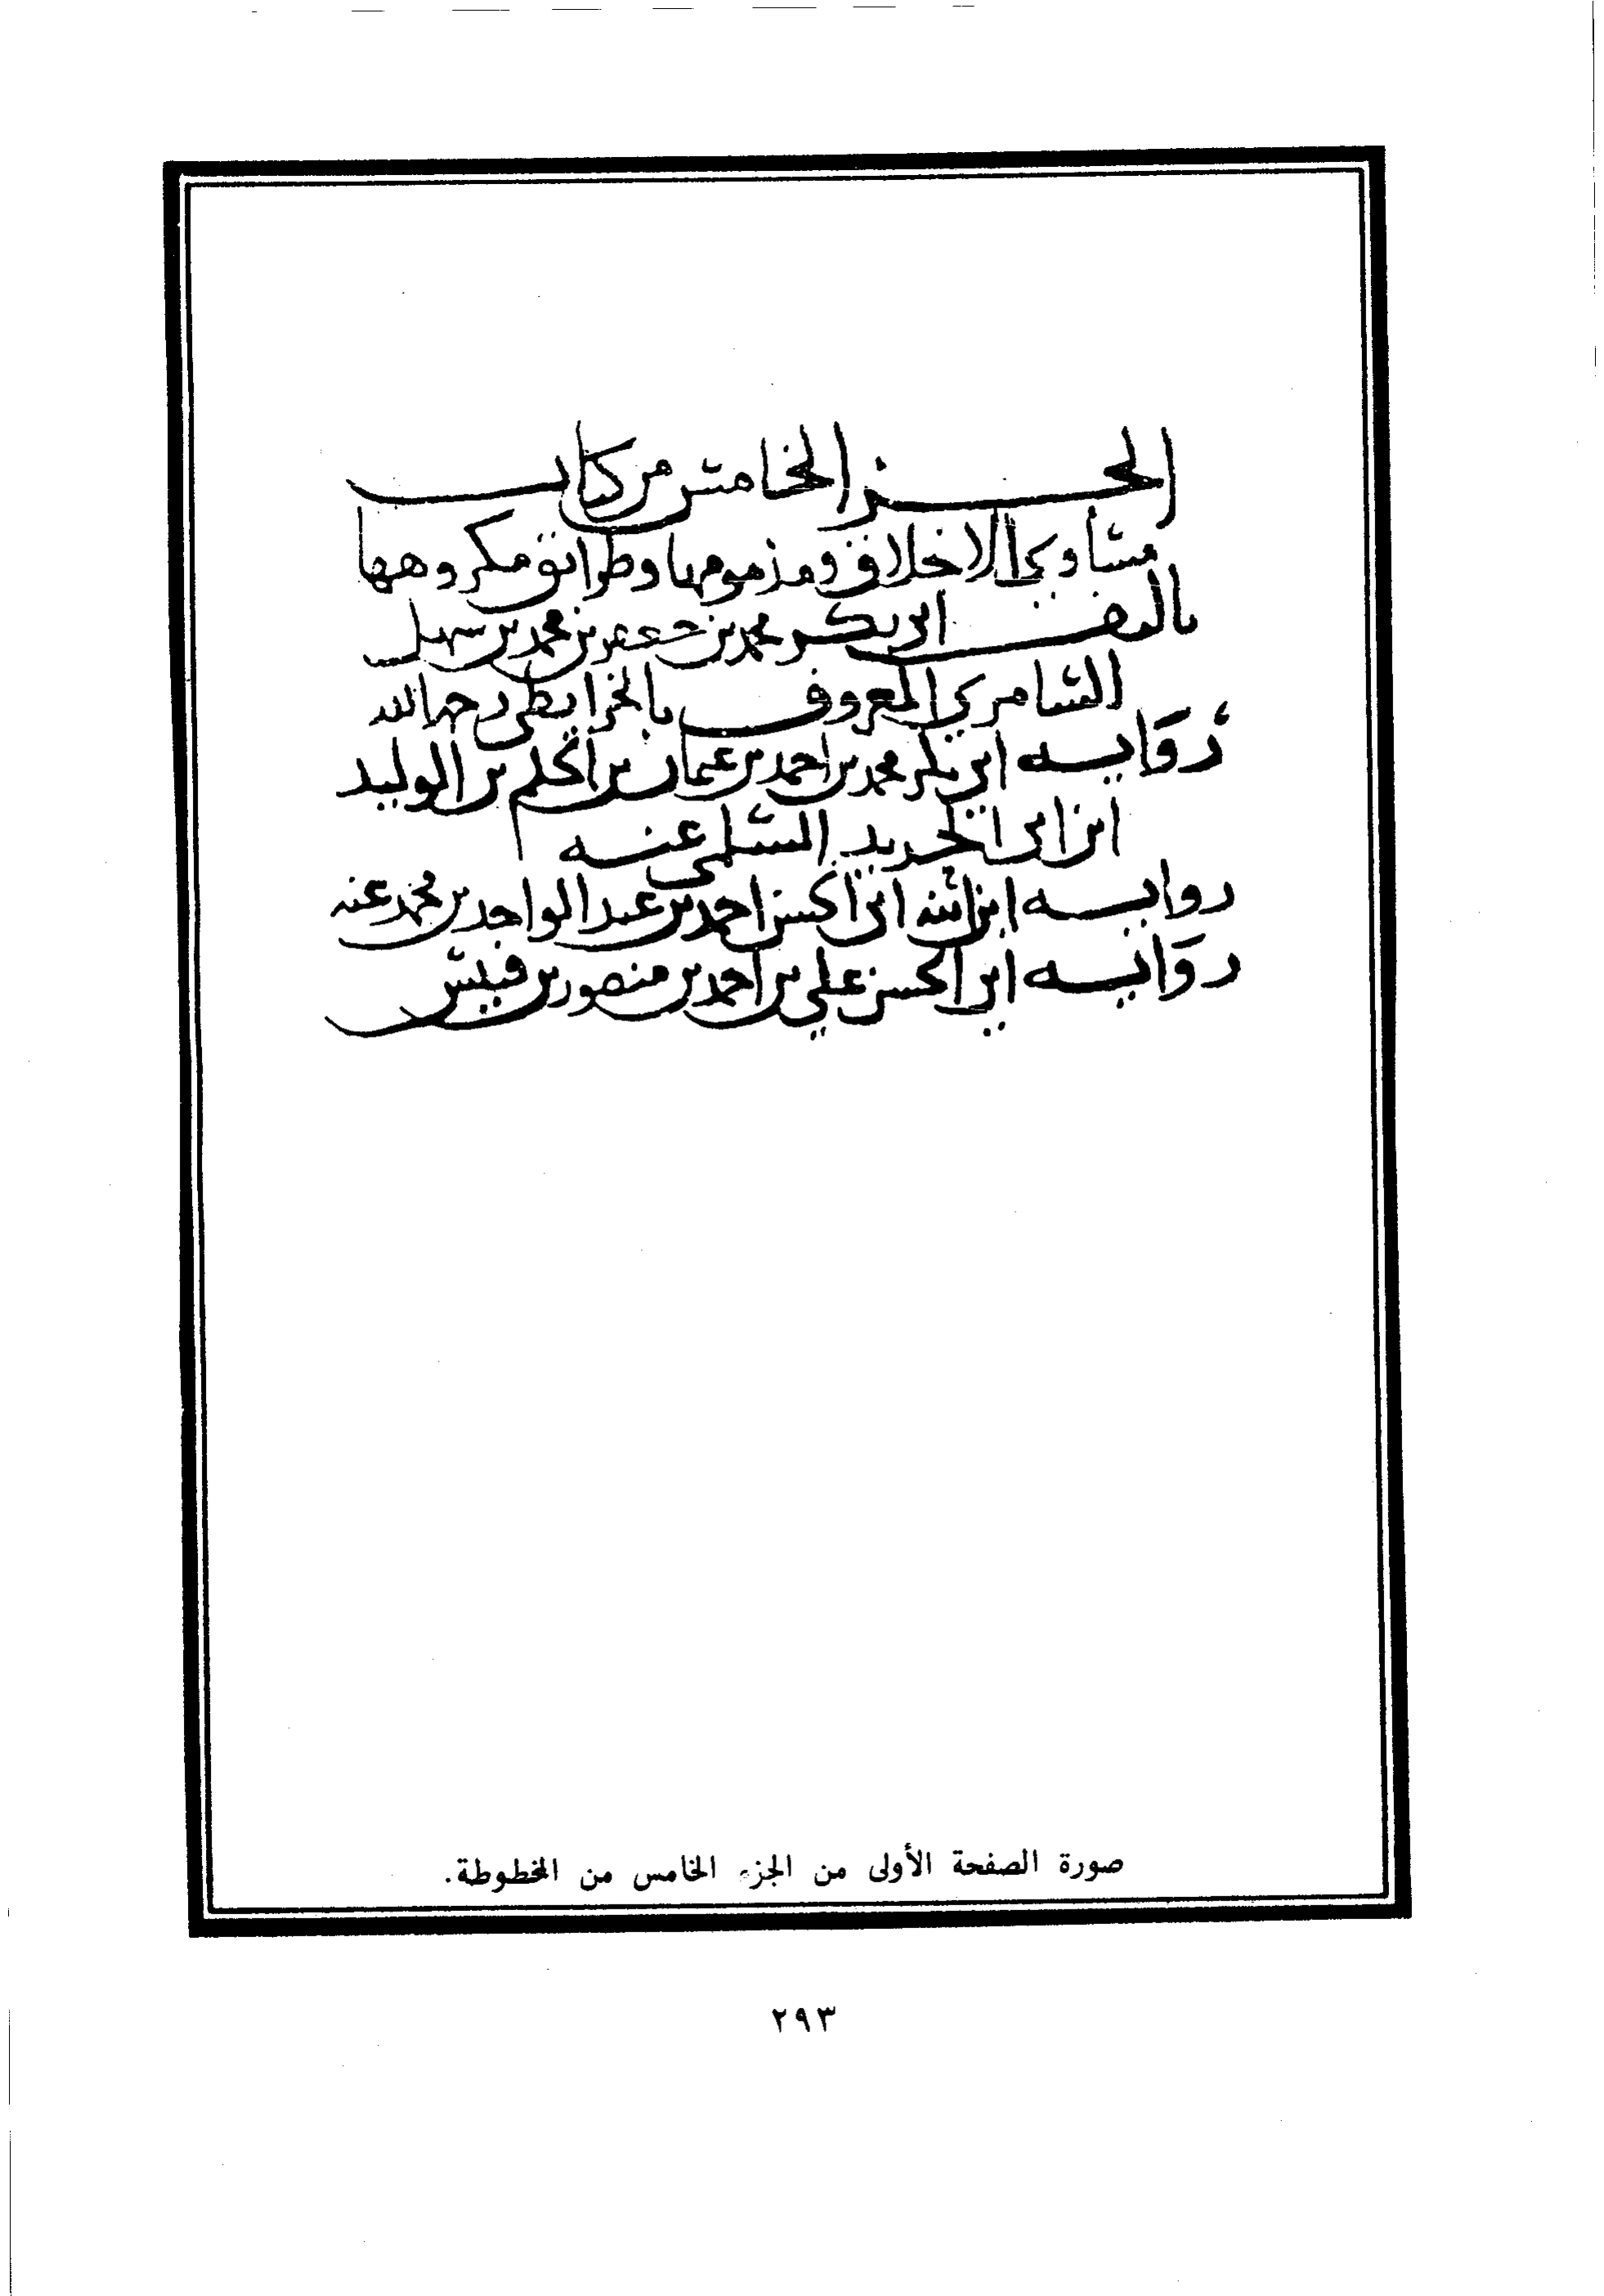 الجز الخامس من كتاب
مساوي الاخلاق ومذمومها وطرائق مكروهها
تاليف ابي بكر محمد بن جعفر بن محمد بن سهل
السامري المعروف بالخرايطي رحمه الله
رواية ابي بكر محمد بن احمد بن عثمان بن الحكم بن الوليد
ابن ابي الحديد السلمي عنه
رواية ابن ابنه ابي الحسن احمد بن عبد الواحد بن محمد عنه
رواية ابي الحسن علي بن احمد بن منصور بن قبيس
صورة الصفحة الأولى من الجزء الخامس من المخطوطة.
٢٩٣